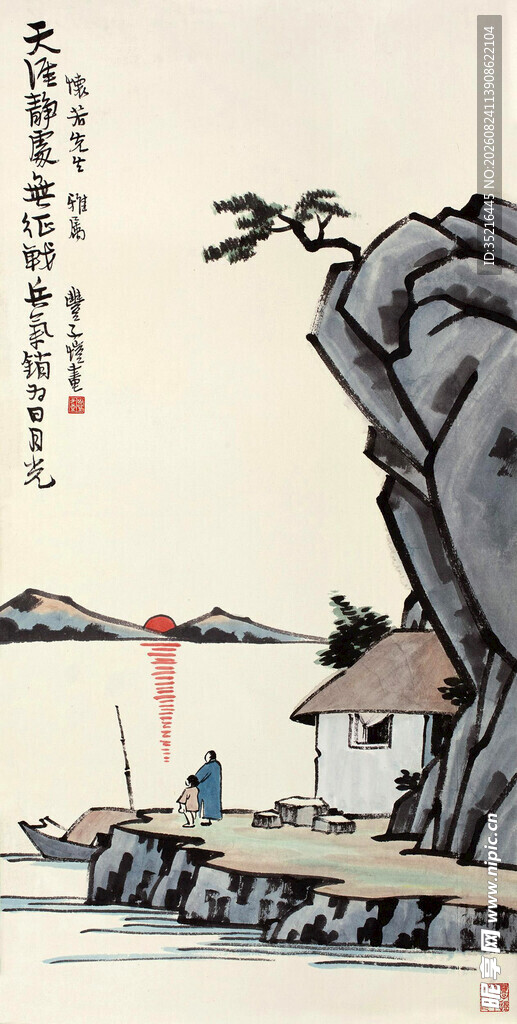 天涯靜處無征戰兵氣銷為日月光
懷若先生 雅屬
豐子愷畫
ID:35216445 NO:20260824113908622104
昵享网 www.nipic.cn